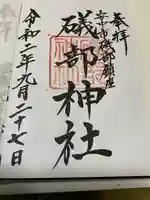 奉拝
安中市磯部鎮座
磯部神社
令和二年九月二十七日